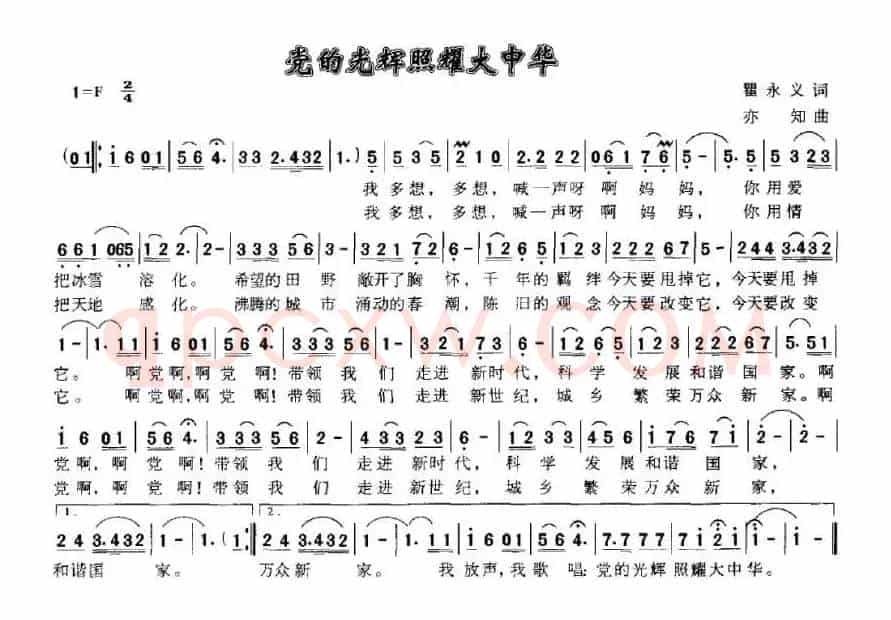 党的光辉照耀大中华
1=F 2/4
瞿永义词
亦知曲
(01 i 6 01 | 56 4. | 33 2.432 | 1.) 5 | 5 3 5 | 2 1 0 | 2. 2 22 | 061 7 6 | 5 - | 5. 5 | 5 3 23
我多想，多想，喊一声呀啊妈妈，你用爱
我多想，多想，喊一声呀啊妈妈，你用情
661 065 | 1 22. | 2 - | 333 56 | 3 - | 333 321 | 7 2 | 6 - | 5 61 | 2 33 | 223 765 | 2 - | 244 3.432
把冰雪溶化。希望的田野敞开了胸怀，千年的羁绊今天要甩掉它，今天要甩掉
把天地感化。沸腾的城市涌动的春潮，陈旧的观念今天要改变它，今天要改变
1 - | 1. 11 | i 6 01 | 56 4. | 333 56 | 2 - | 4 33 | 321 73 | 6 - | 5 12 | 1 33 | 223 26 7 | 5. 51
它。啊党啊，啊党啊！带领我们走进新时代，科学发展和谐国家。啊
它。啊党啊，啊党啊！带领我们走进新世纪，城乡繁荣万众新家。啊
i 6 01 | 56 4. | 333 56 | 2 - | 4 33 | 323 56 | 6 - | 12 33 | 4 56 | 6 i 76 | 7 i | 2 - | 2 -
党啊，啊党啊！带领我们走进新时代，科学发展和谐国家，
党啊，啊党啊！带领我们走进新世纪，城乡繁荣万众新家，
1. 2.
24 3.432 | 1 - | 1. (01 | 24 3.432 | 1 - | 1. 5 | 665 | 664 | 5 - | 7. 7 77 | 7 i 2 | i - | i -
和谐国家。万众新家。我放声，我歌唱：党的光辉照耀大中华。
qpcxw.com